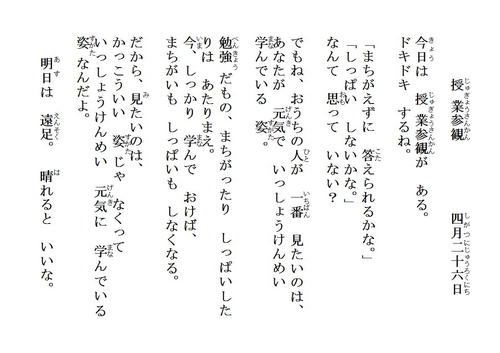 授業参観　四月二十六日
今日は　授業参観が　ある。
ドキドキ　するね。
「まちがえずに　答えられるかな。」
「しっぱい　しないかな。」
なんて　思って　いない？
でもね、おうちの人が　一番　見たいのは、
あなたが　元気で　いっしょうけんめい
学んでいる　姿。
勉強　だもの、まちがったり　しっぱいした
りは　あたりまえ。
今、しっかり　学んで　おけば、
まちがいも　しっぱいも　しなくなる。
だから、見たいのは、
かっこういい　姿じゃ　なくって
いっしょうけんめい　元気に　学んでいる
姿　なんだよ。
明日は　遠足。　晴れると　いいな。